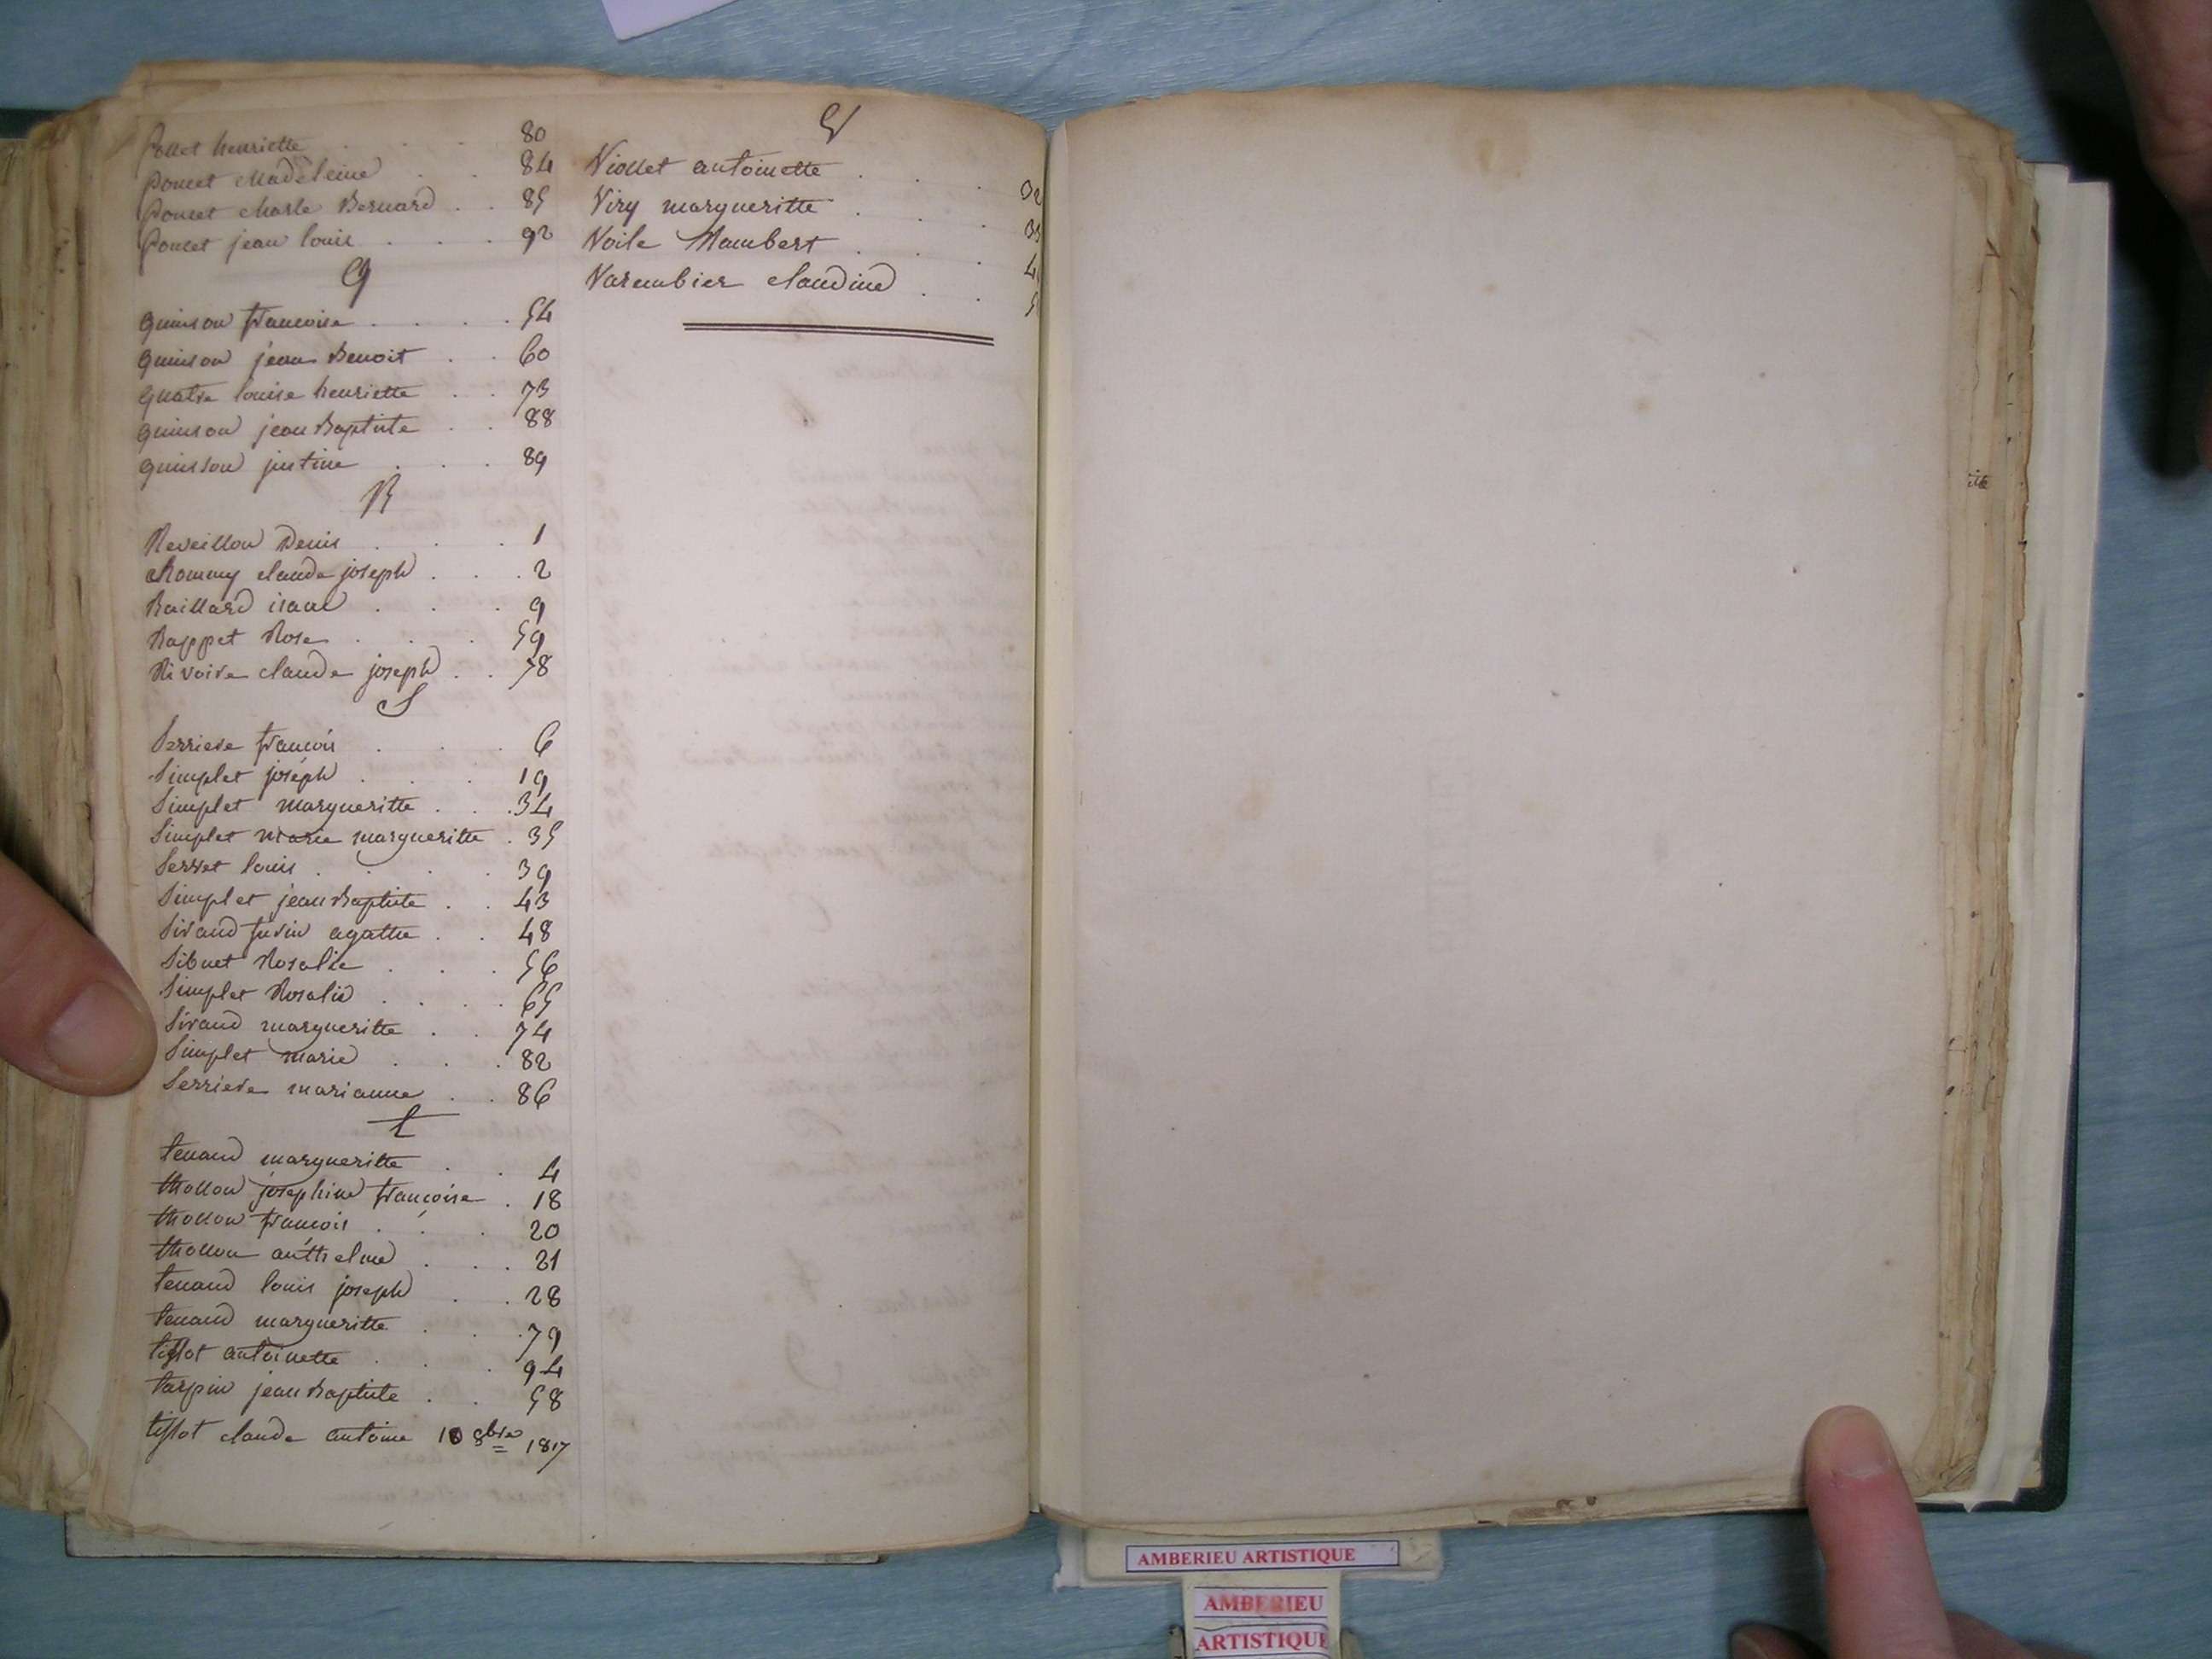 Pollet henriette . . . 80
Poncet Madeleine . . 84
Poncet Marle Bernard . . 85
Poncet jean louis . . . 92
Q
quinson francoise . . . . 54
quinson jean Benoit . . 60
quatre louise henriette . . 73
quinson jean Baptiste . . 88
quinson justine . . . 89
R
Reveillon Denis . . . 1
Rommy claude joseph . . . 2
Raillard isaac . . . 9
Rappet Rose . . . 59
Rivoire claude joseph . . 78
S
Serriere francois . . . 6
Simplet joseph . . . 19
Simplet margueritte . . . 34
Simplet marie margueritte . 35
Serret louis . . . . 39
Simplet jean Baptiste . . 43
Sirand agathe . . 48
Sibuet Rosalie . . . 56
Simplet Rosalie . . . . 65
Sirand margueritte . . 74
Simplet marie . . . 82
Serriere marianne . . 86
t
tenand margueritte . . 4
thollon josephine françoise . 18
thollon francois . . . 20
thollon anthelme . . . 21
tenand louis joseph . . 28
tenand margueritte . . 79
tissot antoinette . . . 94
tarpin jean Baptiste . . 58
tissot claude antoine 10 8bre 1817
V
Viollet antoinette . . .
Viry margueritte . .
Voile Mambert . . .
Varembier claudine . .
AMBERIEU ARTISTIQUE
AMBERIEU
ARTISTIQUE